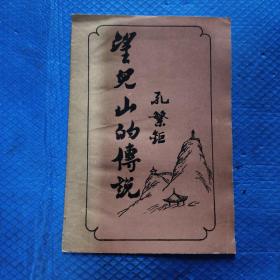 望儿山的傳説
孔繁钜